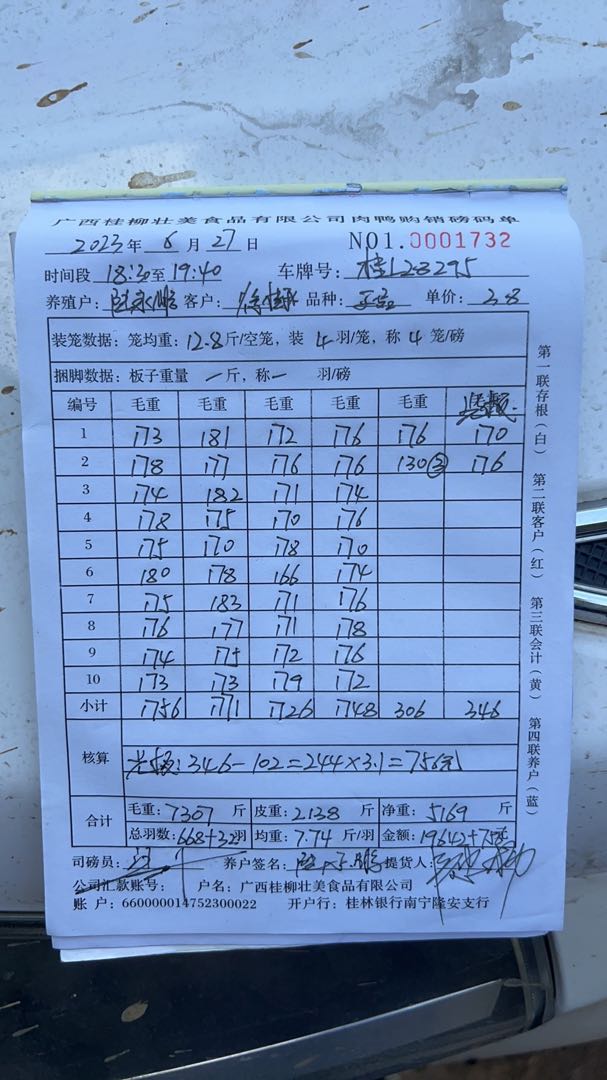 广西桂柳壮美食品有限公司肉鸭购销磅码单
2023年 6月 27日 NO1.0001732
时间段 18:30至19:40 车牌号: 桂L28295
养殖户: 客户: 品种: 单价: 3.8
装笼数据: 笼均重: 12.8斤/空笼, 装 4羽/笼, 称 4 笼/磅
捆脚数据: 板子重量 一斤, 称一 羽/磅
编号 毛重 毛重 毛重 毛重 毛重
1 173 181 172 176 176 170
2 178 177 176 176 130③ 176
3 174 182 171 174
4 178 175 170 176
5 175 170 178 170
6 180 178 166 174
7 175 183 171 176
8 176 177 171 178
9 174 175 172 176
10 173 173 179 172
小计 1756 1771 1726 1748 306 346
核算 : 346-102=244×3.1=756元
合计 毛重: 7307 斤 皮重: 2138 斤 净重: 5169 斤
总羽数: 668+32羽 均重: 7.74 斤/羽 金额: 19642+756
司磅员: 养户签名: 提货人:
公司汇款账号: 户名: 广西桂柳壮美食品有限公司
账 户: 660000014752300022 开户行: 桂林银行南宁隆安支行
第一联存根(白) 第二联客户(红) 第三联会计(黄) 第四联养户(蓝)